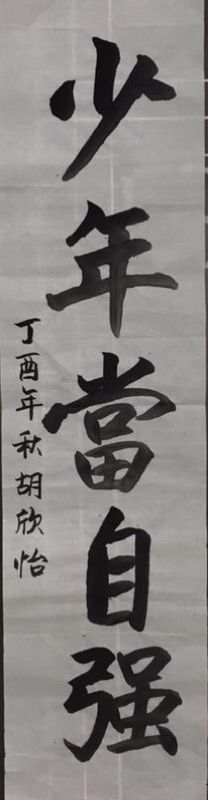 少年當自强
丁酉年秋胡欣怡